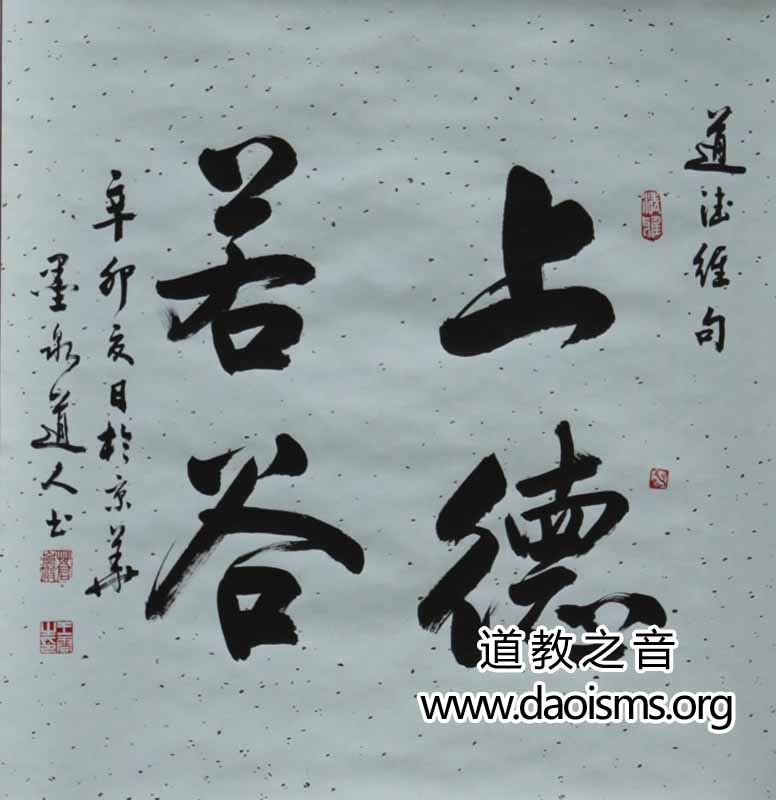 道德經句
上德
若谷
辛卯夏日於京華
墨泉道人书
道教之音
www.daoisms.org